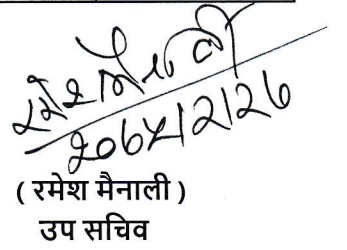 रमेश मैनाली
२०७५।२।२७
( रमेश मैनाली )
उप सचिव